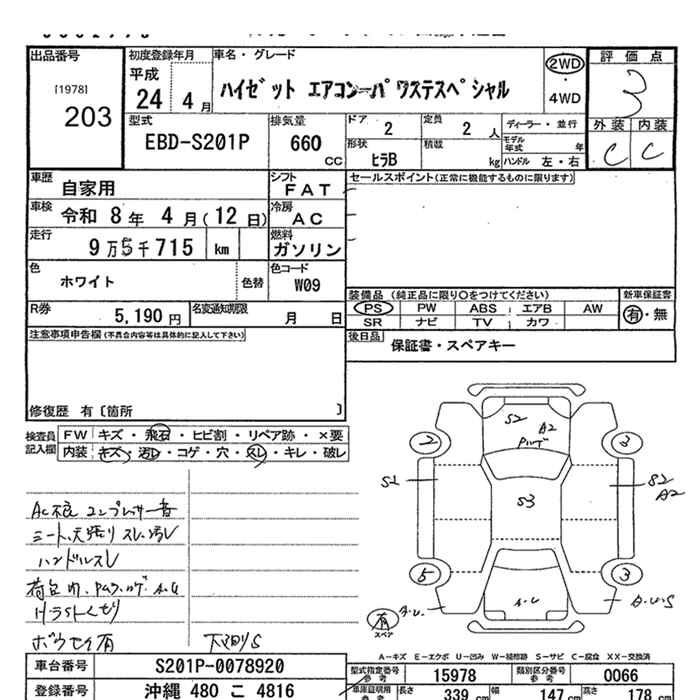 出品番号
[1978]
203
初度登録年月
平成
24 4 月
車名・グレード
ハイゼット エアコン-パワステスペシャル
2WD
・
4WD
評価点
3
外装 内装
C C
型式
EBD-S201P
排気量
660
CC
ドア 2
定員 2 人
形状 ヒラB
積載 kg
ディーラー・並行
モデル年式 年
ハンドル 左・右
車歴
自家用
シフト
FAT
セールスポイント(正常に機能するものに限ります)
車検
令和 8 年 4 月(12 日)
冷房
AC
走行
9 万 5 千 715 km
燃料
ガソリン
色
ホワイト
色替
色コード
W09
装備品 (純正品に限り○をつけてください)
新車保証書
PS PW ABS エアB AW
有・無
SR ナビ TV カワ
R券
5,190 円
名変通知期限
月 日
後日品
保証書・スペアキー
注意事項申告欄(不具合内容等は具体的に記入して下さい)
修復歴 有〔箇所 〕
検査員記入欄
FW キズ・飛石・ヒビ割・リペア跡・×要
内装 キズ・汚レ・コゲ・穴・スレ・キレ・破レ
S2
A2
2
3
S2
S3
S2
A2
AC不良 コンプレッサー音
シート、天張り スレ、汚レ
ハンドルスレ
5
3
A.U.
A.U
A.U.S
有
スペア
ボウセイ有
下回りS
A-キズ E-エクボ U-凹み W-補修跡 S-サビ C-腐食 XX-交換済
車台番号
S201P-0078920
型式指定番号
参考
15978
類別区分番号
参考
0066
登録番号
沖縄 480 こ 4816
車庫証明用
参考
長さ 339 cm
幅 147 cm
高さ 178 cm